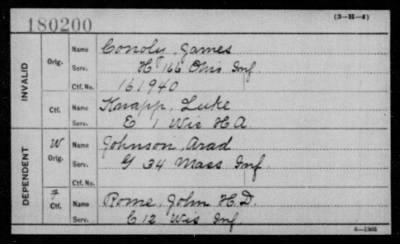 180200
(3-H-4)
INVALID
Orig.
Name Conoly, James
Serv. H 166 Ohio Inf
Ctf. No. 161940
Ctf.
Name Knapp, Luke
Serv. E 1 Wis H A
DEPENDENT
W
Orig.
Name Johnson, Arad
Serv. G 34 Mass Inf.
Ctf. No.
Ctf.
Name Rome, John H. D.
Serv. C 12 Wis Inf